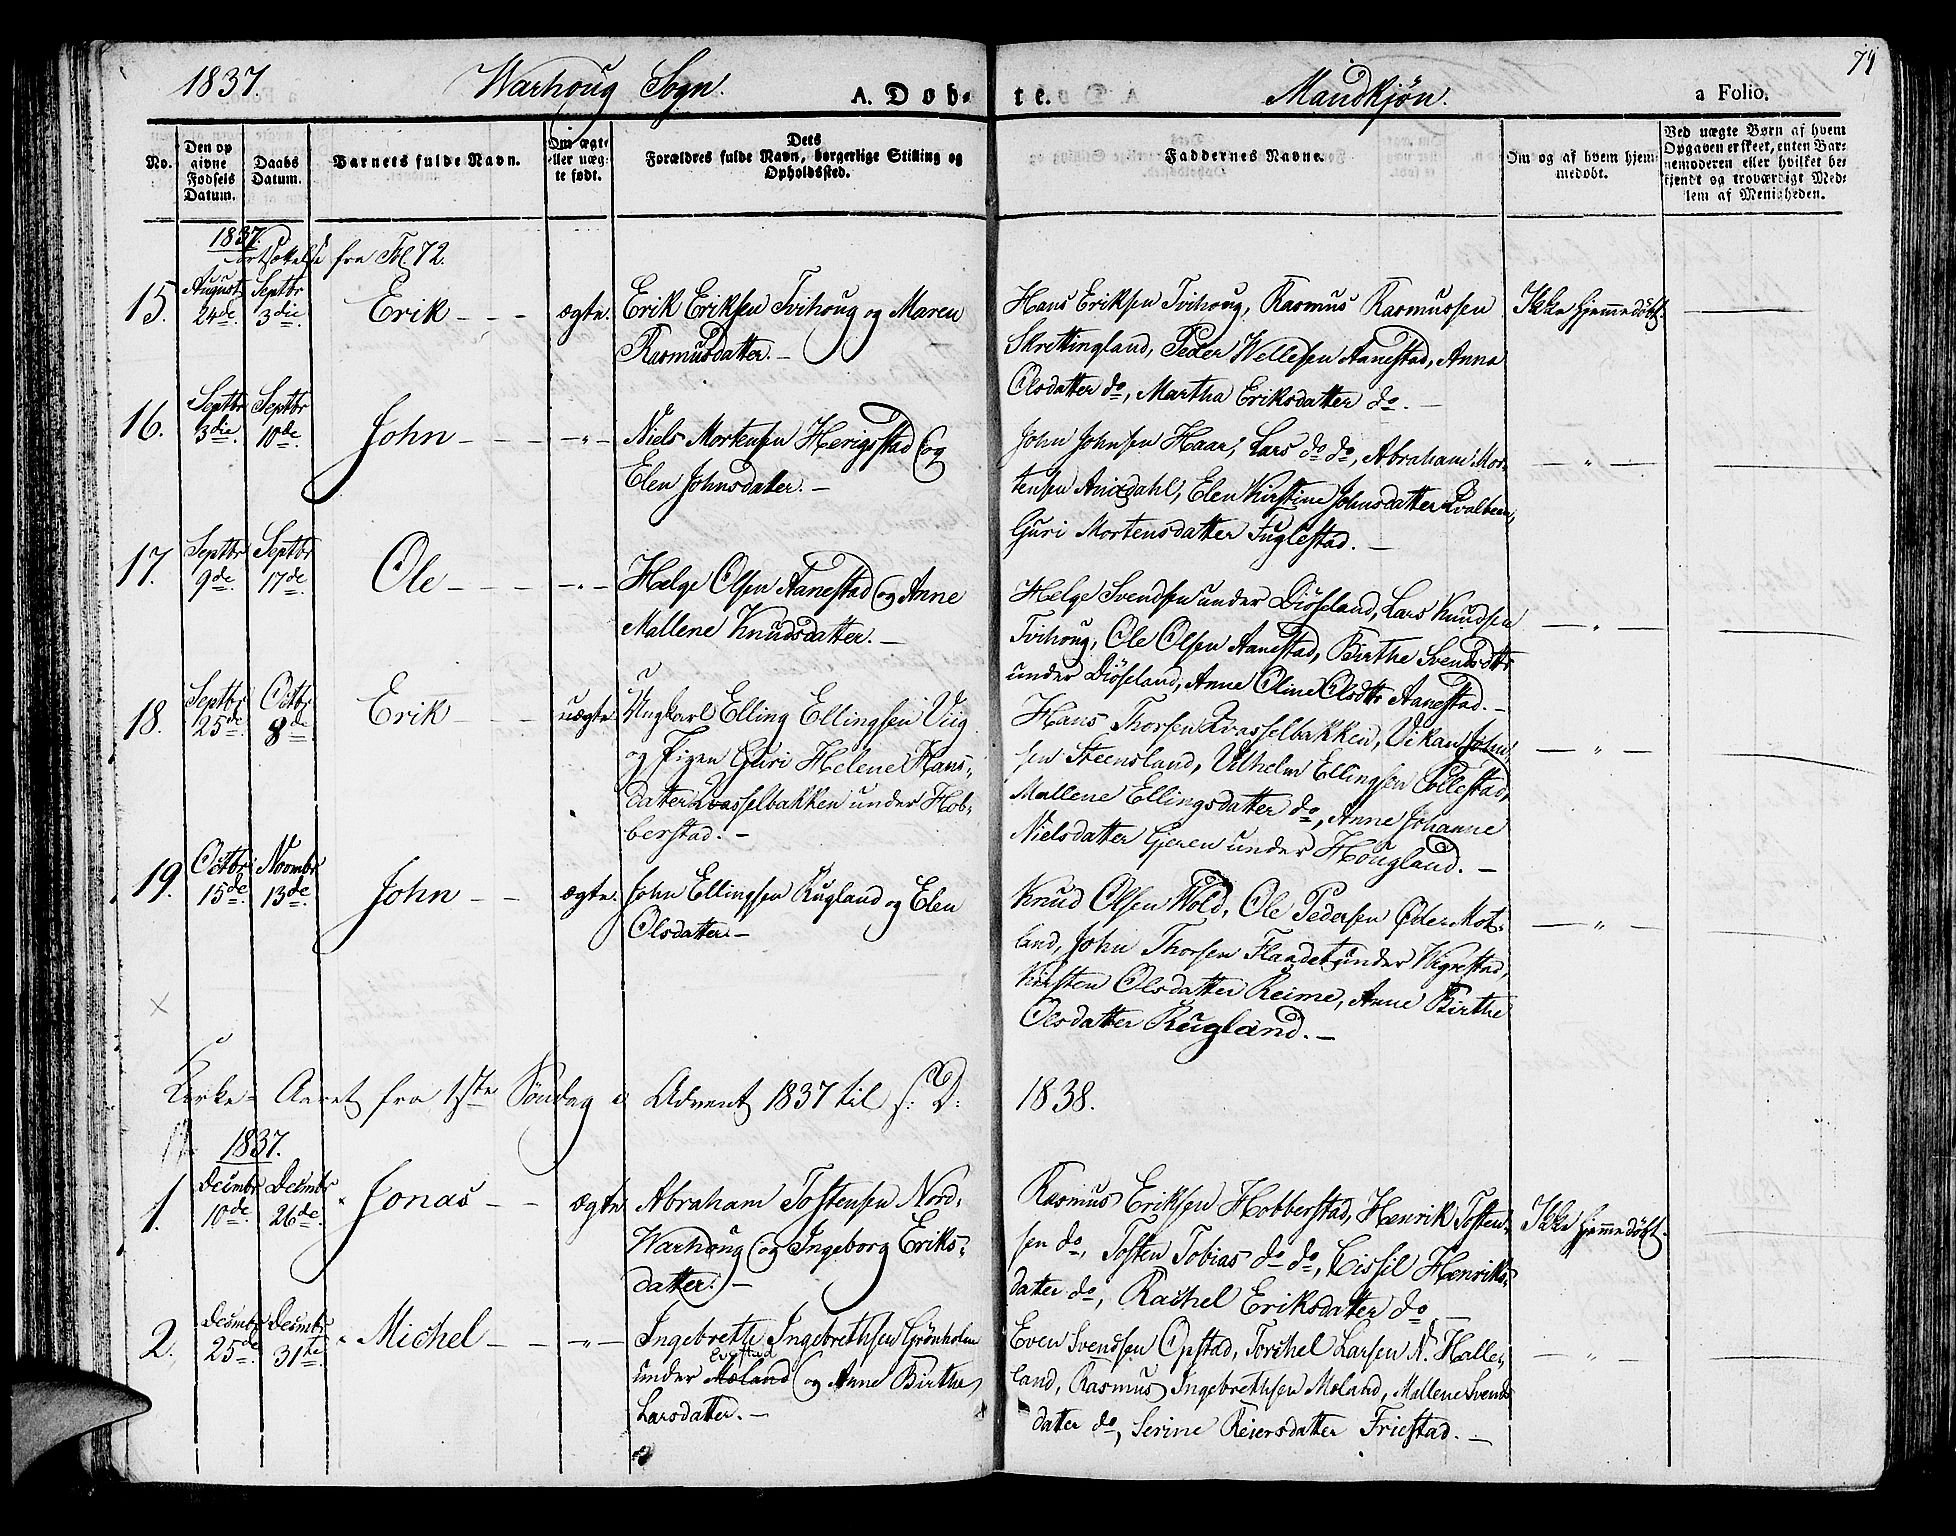 1837. Warhoug Sogn. A. Døb- te. Mandkjøn. a Folio. 74
No.
Den op givne Fødsels Datum.
Daabs Datum.
Barnets fulde Navn.
Om ægte eller uægte født.
Dets Forældres fulde Navn, borgerlige Stilling og Opholdssted.
Faddernes Navne.
Om og af hvem hjemmedøbt.
Ved uægte Børn af hvem Opgaven er skeet, enten Barnemoderen eller hvilket bekjendt og troværdigt Medlem af Menigheden.
1837.
Fortsættelse fra Fol. 72.
15. August 24de. Septbr 3die. Erik - - - ægte.
Erik Eriksen Tvihoug og Maren
Rasmusdatter. -
Hans Eriksen Tvihoug, Rasmus Rasmussen
Skrettingland, Peder Wellesen Aanestad, Anna
Olsdatter do, Martha Eriksdatter do. -
Ikke hjemmedøbt.
16. Septbr 3die. Septbr 10de. John - - - -"-
Niels Mortensen Herigstad og
Elen Johnsdater. -
John Johnsen Haar, Lars do do, Abraham Mor-
tensen Anixdahl, Elen Kirstine Johnsdatter Qvalbein,
Guri Mortensdatter Fuglestad. -
- " -
17. Septbr 9de. Septbr 17de. Ole - - - - -"-
Helge Olsen Aanestad og Anne
Mallene Knudsdatter. -
Helge Svendsen under Diösland, Lars Knudsen
Tvihoug, Ole Olsen Aanestad, Birthe Svendsdtr
under Diösland, Anne Oline Olsdtr Aanestad. -
- " -
18. Septbr 25de. Octbr. 8de. Erik - - - uægte
Ungkarl Elling Ellingsen Viig
og Pigen Guri Helene Hans-
datter Qvasselbakken under Hob-
berstad. -
Hans Thorsen Qvasselbakken, Vikan John-
sen Steensland, Vilhelm Ellingsen Pollestad,
Mallene Ellingsdatter do, Anne Johanne
Nielsdatter Gjeren under Hougland. -
- " -
19. Octbr. 15de. Novmbr 13de. John - - ægte.
John Ellingsen Rugland og Elen
Olsdatter. -
Knud Olsen Wold, Ole Pedersen Øder Mot-
land, John Thorsen Flaadet under Wigrestad,
Kirsten Olsdatter Reime, Anne Birthe
Olsdatter Rugland. -
- " -
Kirke-Aaret fra 1ste Søndag i Advent 1837 til s: D: 1838.
1837.
1. Decmbr 10de. Decmbr 26de. Jonas - - ægte
Abraham Tostensen Nord-
Warhoug og Ingeborg Eriks-
datter. -
Rasmus Eriksen Hobberstad, Henrik Tosten-
sen do, Tosten Tobias do do, Cissil Henriks-
datter do, Rachel Eriksdatter do
Ikke hjemmedøbt.
2. Decmbr 25de. Decmbr 31te. Michel - - -"-
Ingebreth Ingebrethsen Grönholm
under Moland og Anne Birthe
Larsdatter. -
Even Svendsen Opstad, Torchel Larsen N. Halle-
land, Rasmus Ingebrethsen Moland, Mallene Svends
datter do, Serine Reiersdatter Friestad. -
- " -